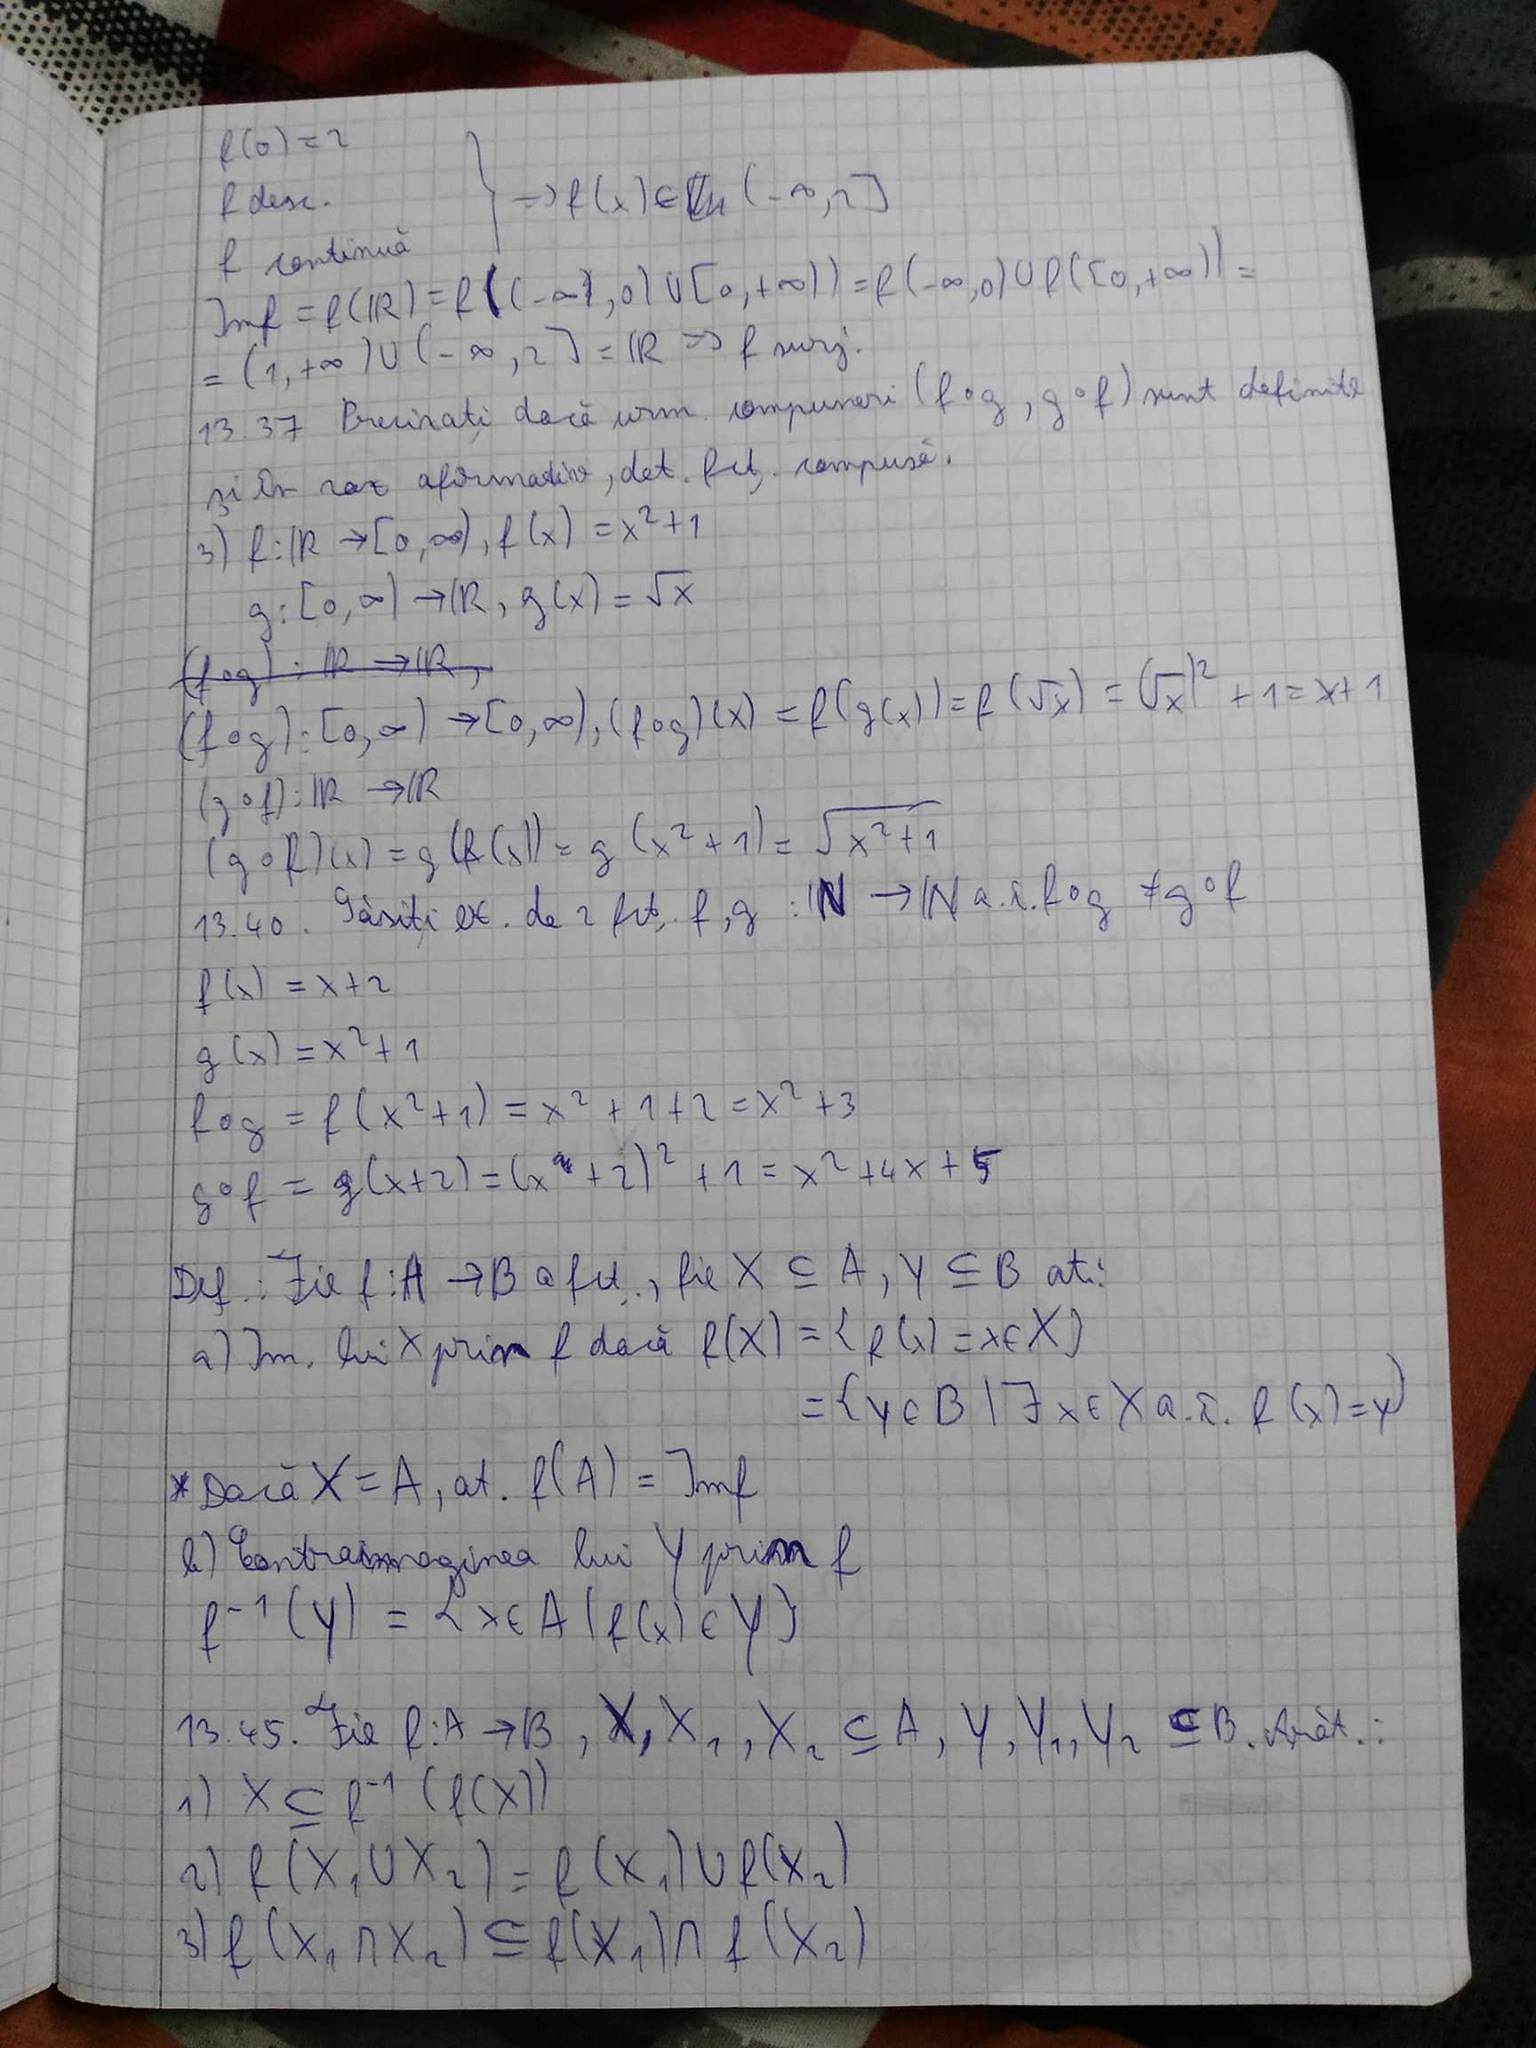 f(0)=2
f desc.
f continuă
} => f(x) ∈ (-∞,2]
Imf = f(ℝ) = f((-∞,0)∪[0,+∞)) = f(-∞,0)∪f([0,+∞)) =
= (1,+∞)∪(-∞,2] = ℝ => f surj.
13.37 Precizați dacă urm. compuneri (f∘g, g∘f) sunt definite
și în caz afirmativ, det. fct. compusă.
3) f:ℝ→[0,∞), f(x) = x²+1
g:[0,∞)→ℝ, g(x) = √x
(f∘g): ℝ→ℝ,
(f∘g):[0,∞)→[0,∞), (f∘g)(x) = f(g(x)) = f(√x) = (√x)²+1 = x+1
(g∘f):ℝ→ℝ
(g∘f)(x) = g(f(x)) = g(x²+1) = √x²+1
13.40. Găsiți ex. de 2 fct. f,g : ℕ→ℕ a.î. f∘g ≠ g∘f
f(x) = x+2
g(x) = x²+1
f∘g = f(x²+1) = x²+1+2 = x²+3
g∘f = g(x+2) = (x+2)²+1 = x²+4x+5
Def.: Fie f:A→B o fct., fie X ⊆ A, Y ⊆ B at.:
a) Im. lui X prin f dacă f(X) = {f(x) = x∈X}
= {y∈B | ∃ x∈X a.î. f(x)=y}
* Dacă X = A, at. f(A) = Imf
b) Contraimaginea lui Y prin f
f⁻¹(Y) = {x∈A | f(x) ∈ Y}
13.45. Fie f:A→B, X, X₁, X₂ ⊆ A, Y, Y₁, Y₂ ⊆ B. Arăt.:
1) X ⊆ f⁻¹(f(X))
2) f(X₁∪X₂) = f(X₁)∪f(X₂)
3) f(X₁∩X₂) ⊆ f(X₁)∩f(X₂)